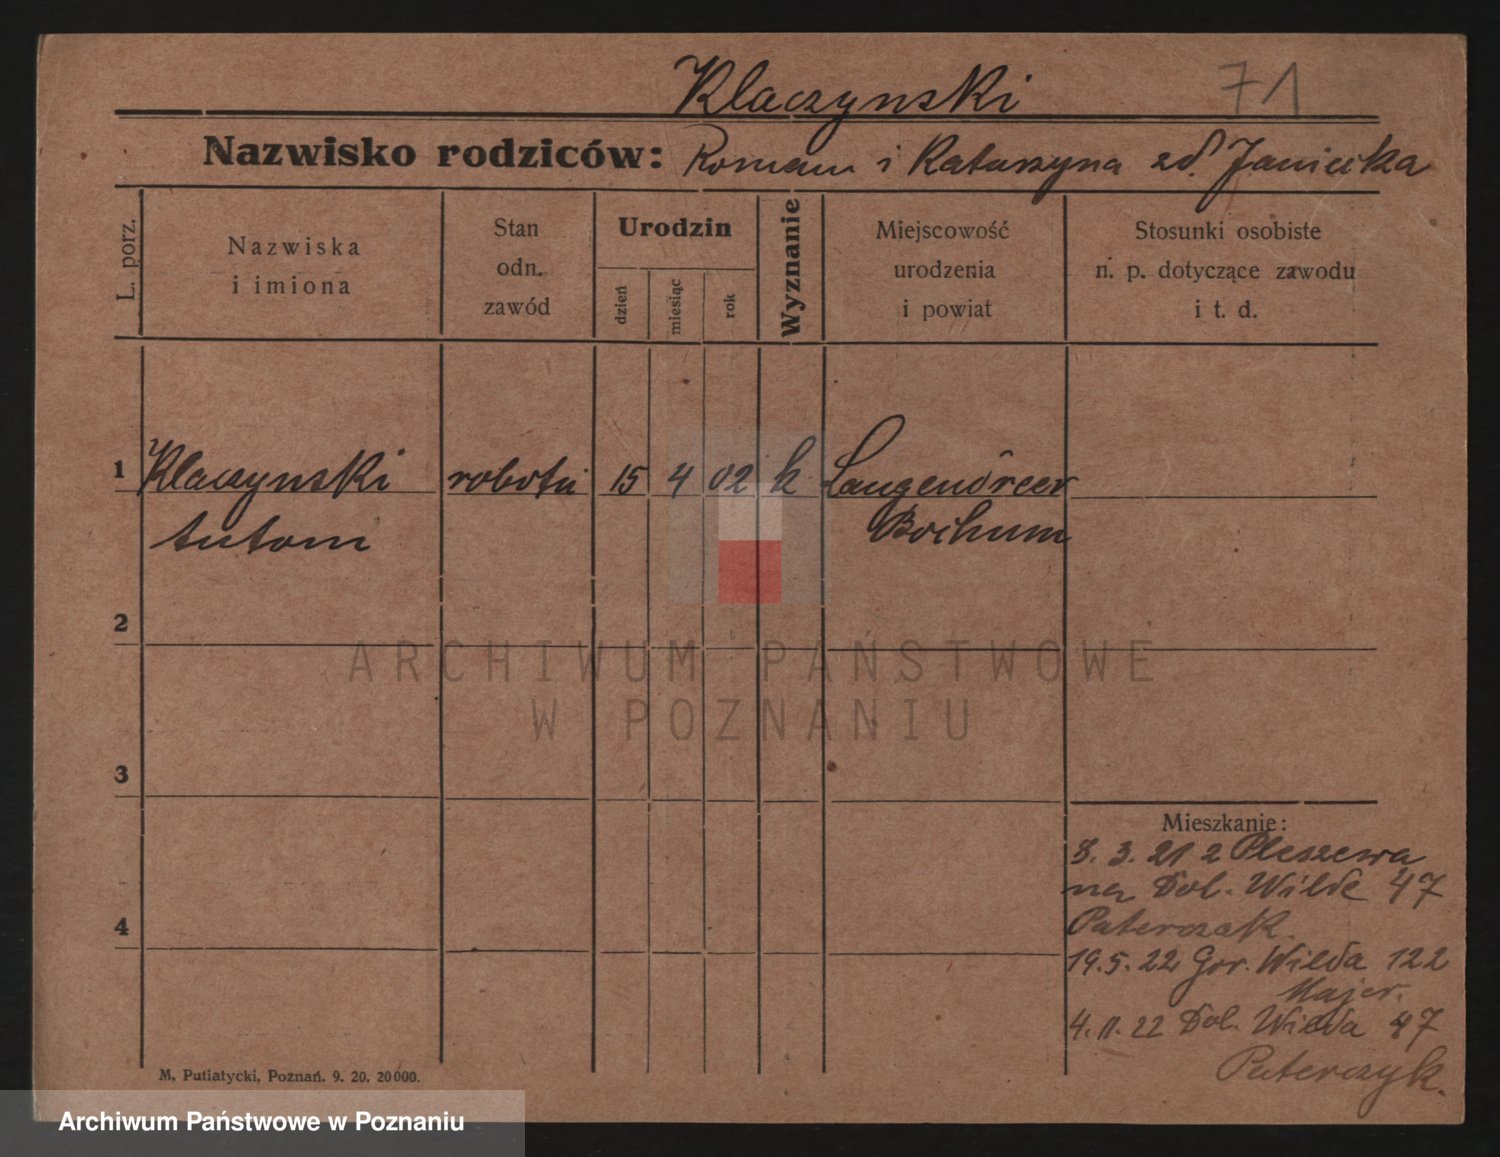 Klaczynski 71
Nazwisko rodziców: Roman i Katarzyna zd. Janicka
L. porz.
Nazwiska
i imiona
Stan
odn.
zawód
Urodzin
dzień
miesiąc
rok
Wyznanie
Miejscowość
urodzenia
i powiat
Stosunki osobiste
n. p. dotyczące zawodu
i t. d.
1 Klaczynski robotn 15 4 02 k Langendreer
Antoni Bochum
2
ARCHIWUM PAŃSTWOWE
W POZNANIU
3
Mieszkanie:
8. 3. 21 z Pleszewa
na Dol. Wilde 47
4 Paterczak
19.5.22 Gor. Wilda 122
Majer.
4.11.22 Dol. Wilda 47
Paterczyk.
M. Putiatycki, Poznań. 9. 20. 20000.
Archiwum Państwowe w Poznaniu